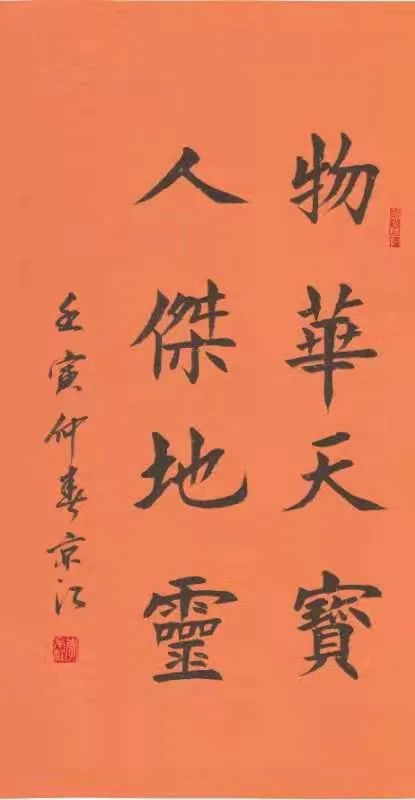 物華天寶
人傑地靈
壬寅仲春京江